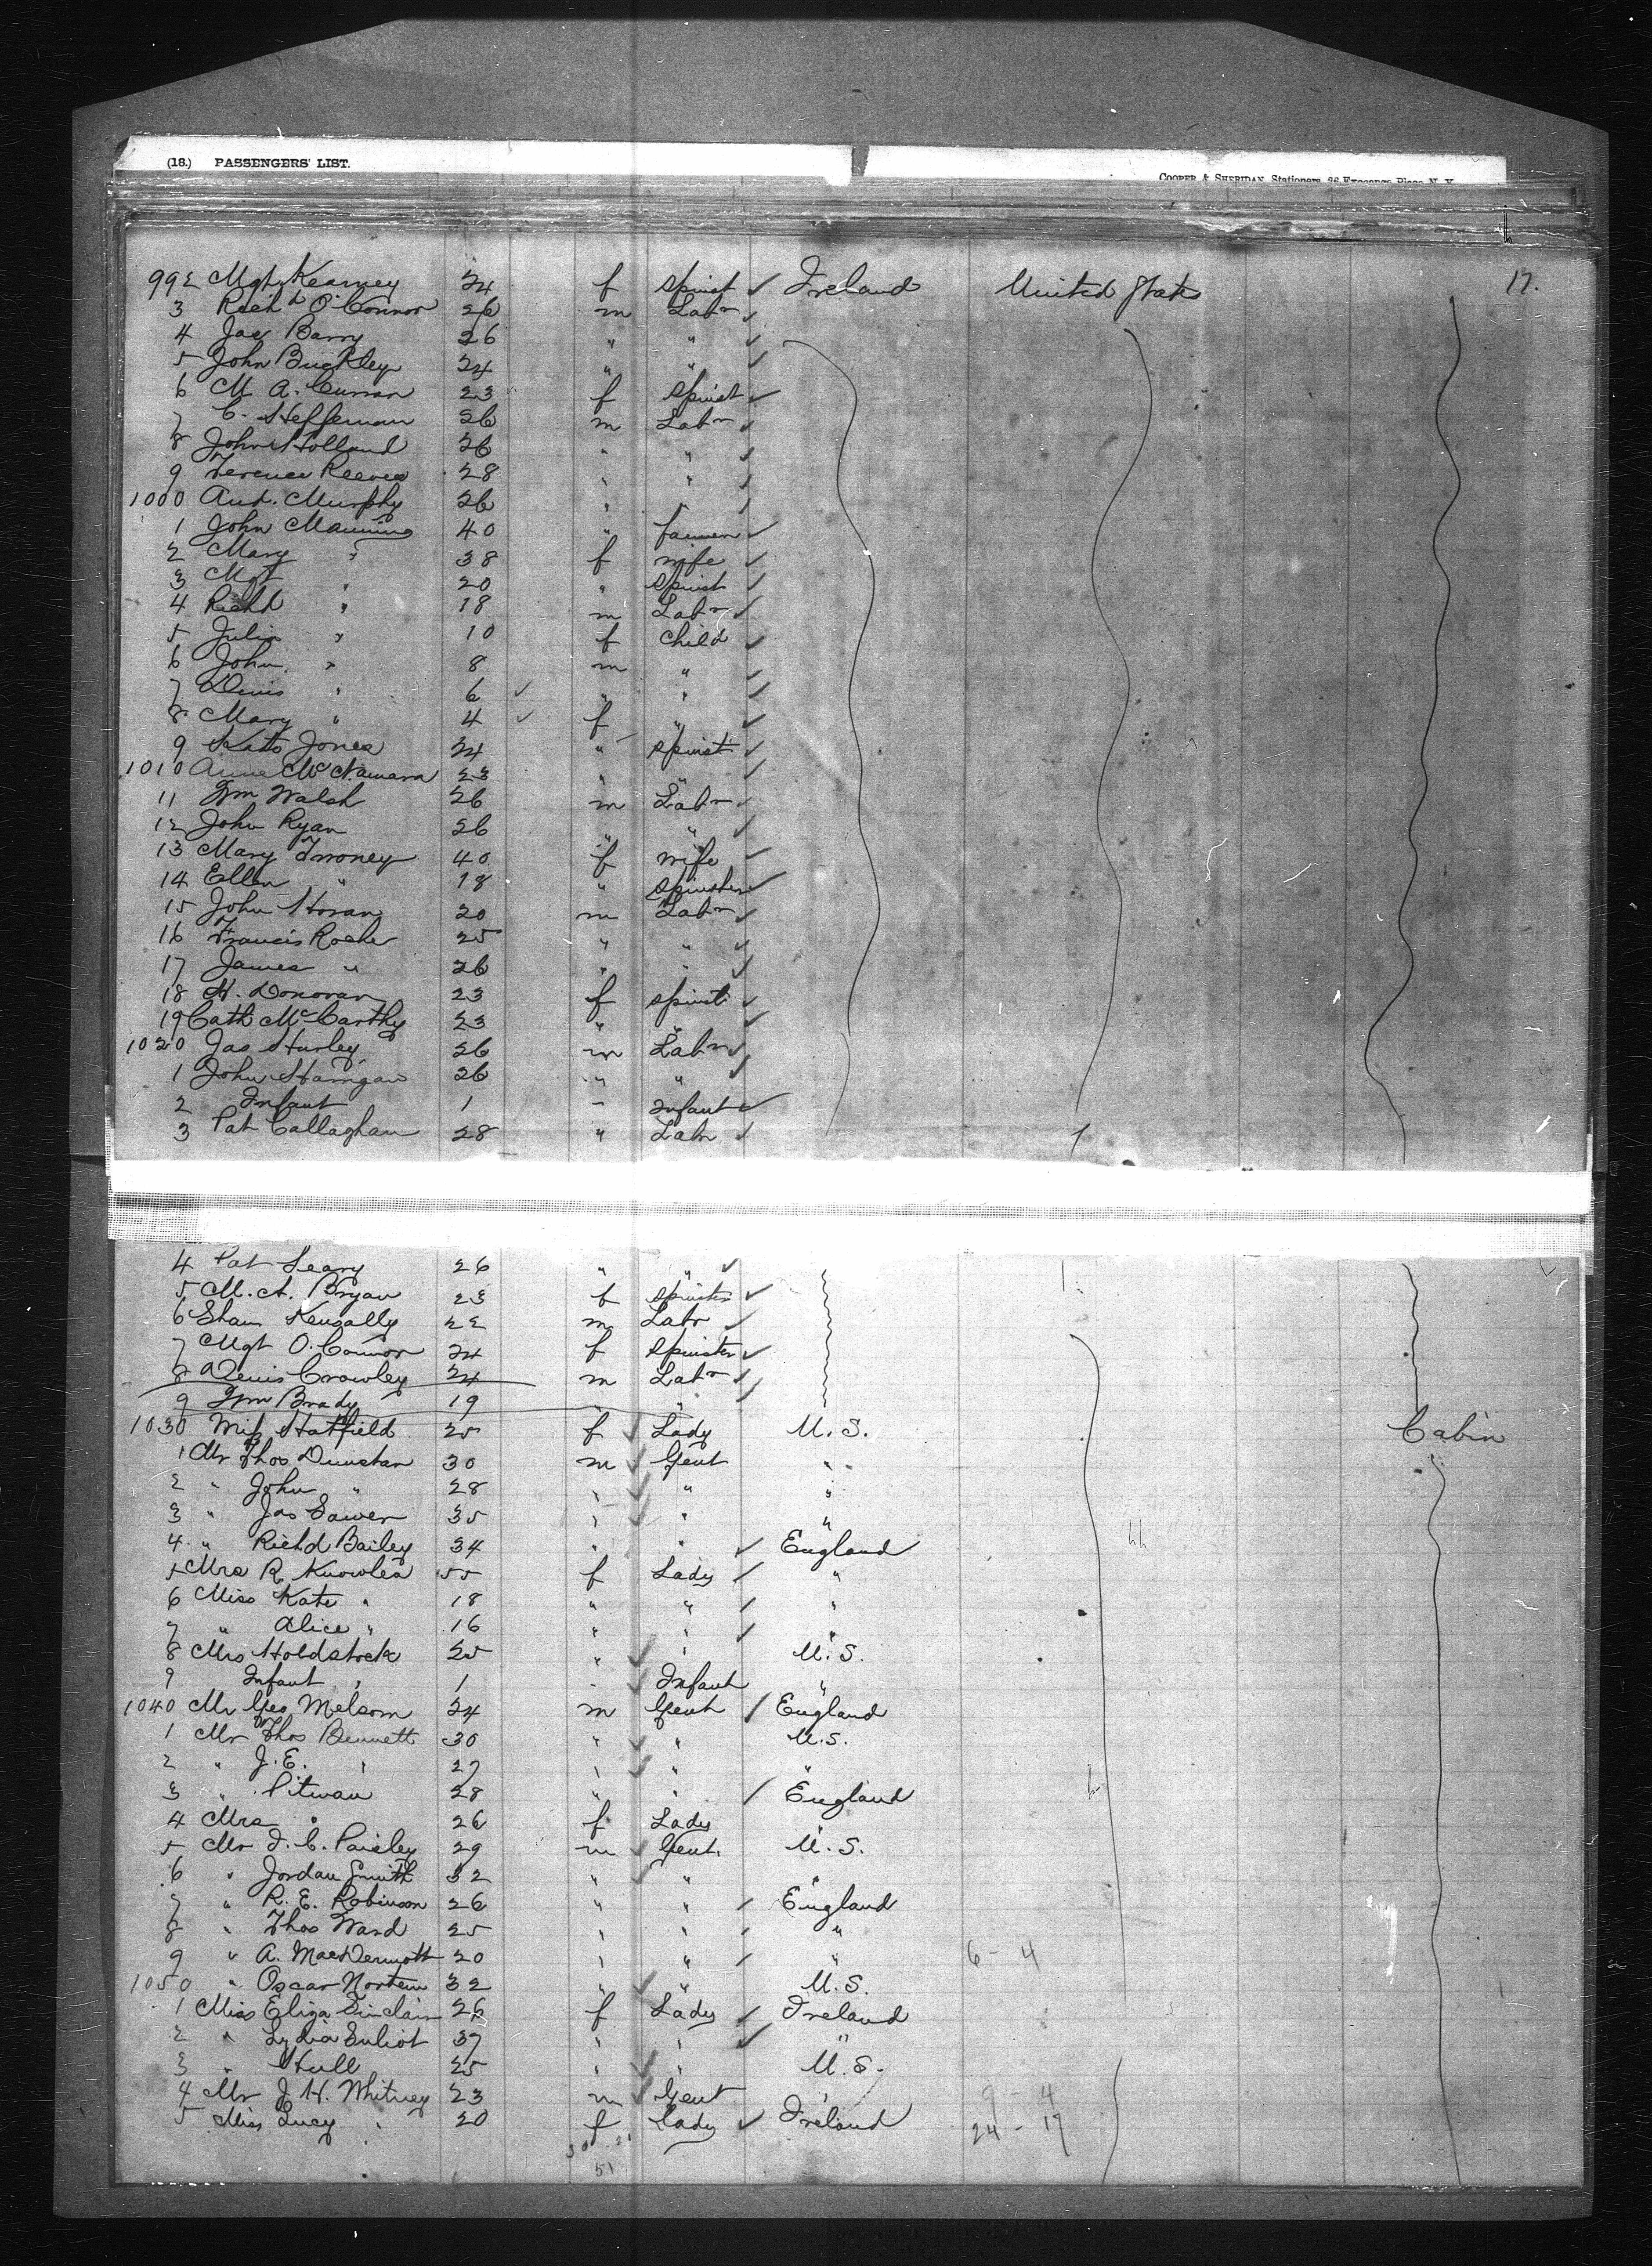 (18.) PASSENGERS' LIST.
COOPER & SHERIDAN, Stationers, 26 Exchange Place, N. Y.
17.
992 Mgt Kearney 24 f Spinst ✓ Ireland United States
3 Richd O'Connor 26 m Labr ✓
4 Jas Barry 26 " " ✓
5 John Buckley 24 " " ✓
6 M. A. Curran 23 f Spinst ✓
7 C. Heffernan 26 m Labr ✓
8 John Holland 26 " " ✓
9 Terence Reeves 28 " " ✓
1000 And. Murphy 26 " " ✓
1 John Manning 40 " farmer ✓
2 Mary " 38 f wife ✓
3 Mgt " 20 " Spinst ✓
4 Richd " 18 m Labr ✓
5 Julia " 10 f child ✓
6 John " 8 m " ✓
7 Denis " 6 ✓ " " ✓
8 Mary " 4 ✓ f " ✓
9 Kate Jones 24 " spinst ✓
1010 Anne McNamara 23 " " ✓
11 Wm Walsh 26 m Labr ✓
12 John Ryan 26 " " ✓
13 Mary 40 f wife ✓
14 Ellen " 18 " Spinster ✓
15 John Horan 20 m Labr ✓
16 Francis Roche 25 " " ✓
17 James " 26 " " ✓
18 H. Donovan 23 f spinst ✓
19 Cath McCarthy 23 " " ✓
1020 Jas Hurley 26 m Labr ✓
1 John Harrigan 26 " " ✓
2 Infant 1 - Infant ✓
3 Pat Callaghan 28 " Labr ✓
4 Pat Leary 26 " " ✓
5 M. A. Bryan 23 f spinster ✓
6 Kensally 22 m Labr ✓
7 Mgt O'Connor 24 f Spinster ✓
8 Denis Crowley 24 m Labr ✓
9 Wm Brady 19 " "
1030 Miss Hatfield 25 f ✓ Lady U.S. Cabin
1 Mr Thos Dunstan 30 m ✓ Gent "
2 " John " 28 " ✓ " "
3 " Jas 35 " ✓ " "
4 " Richd Bailey 34 " " ✓ England
5 Mrs R. Knowles 55 f Lady ✓ "
6 Miss Kate " 18 " " ✓ "
7 " Alice " 16 " " ✓ "
8 Mrs Holdstock 25 " ✓ " U.S.
9 Infant " 1 - Infant "
1040 Mr Geo Melsom 24 m Gent ✓ England
1 Mr Thos Bennett 30 " ✓ " U.S.
2 " J. E. " 27 " ✓ " "
3 " Pitman 28 " " ✓ England
4 Mrs " 26 f Lady
5 Mr J. C. Paisley 29 m ✓ Gent. U.S.
6 " Jordan Smith 32 " ✓ " "
7 " R. E. Robinson 26 " " ✓ England
8 " Thos Ward 25 " " ✓ "
9 " A. MacDermott 20 " " ✓ " 6 - 4
1050 " Oscar 32 " ✓ " U.S.
1 Miss Eliza Sinclair 26 f Lady ✓ Ireland
2 " Lydia 37 " " ✓ "
3 " Hull 25 " ✓ " U.S.
4 Mr J. H. Whitney 23 m ✓ Gent " 9 4
5 Miss Lucy " 20 f Lady ✓ Ireland 24 - 17
30 21
51